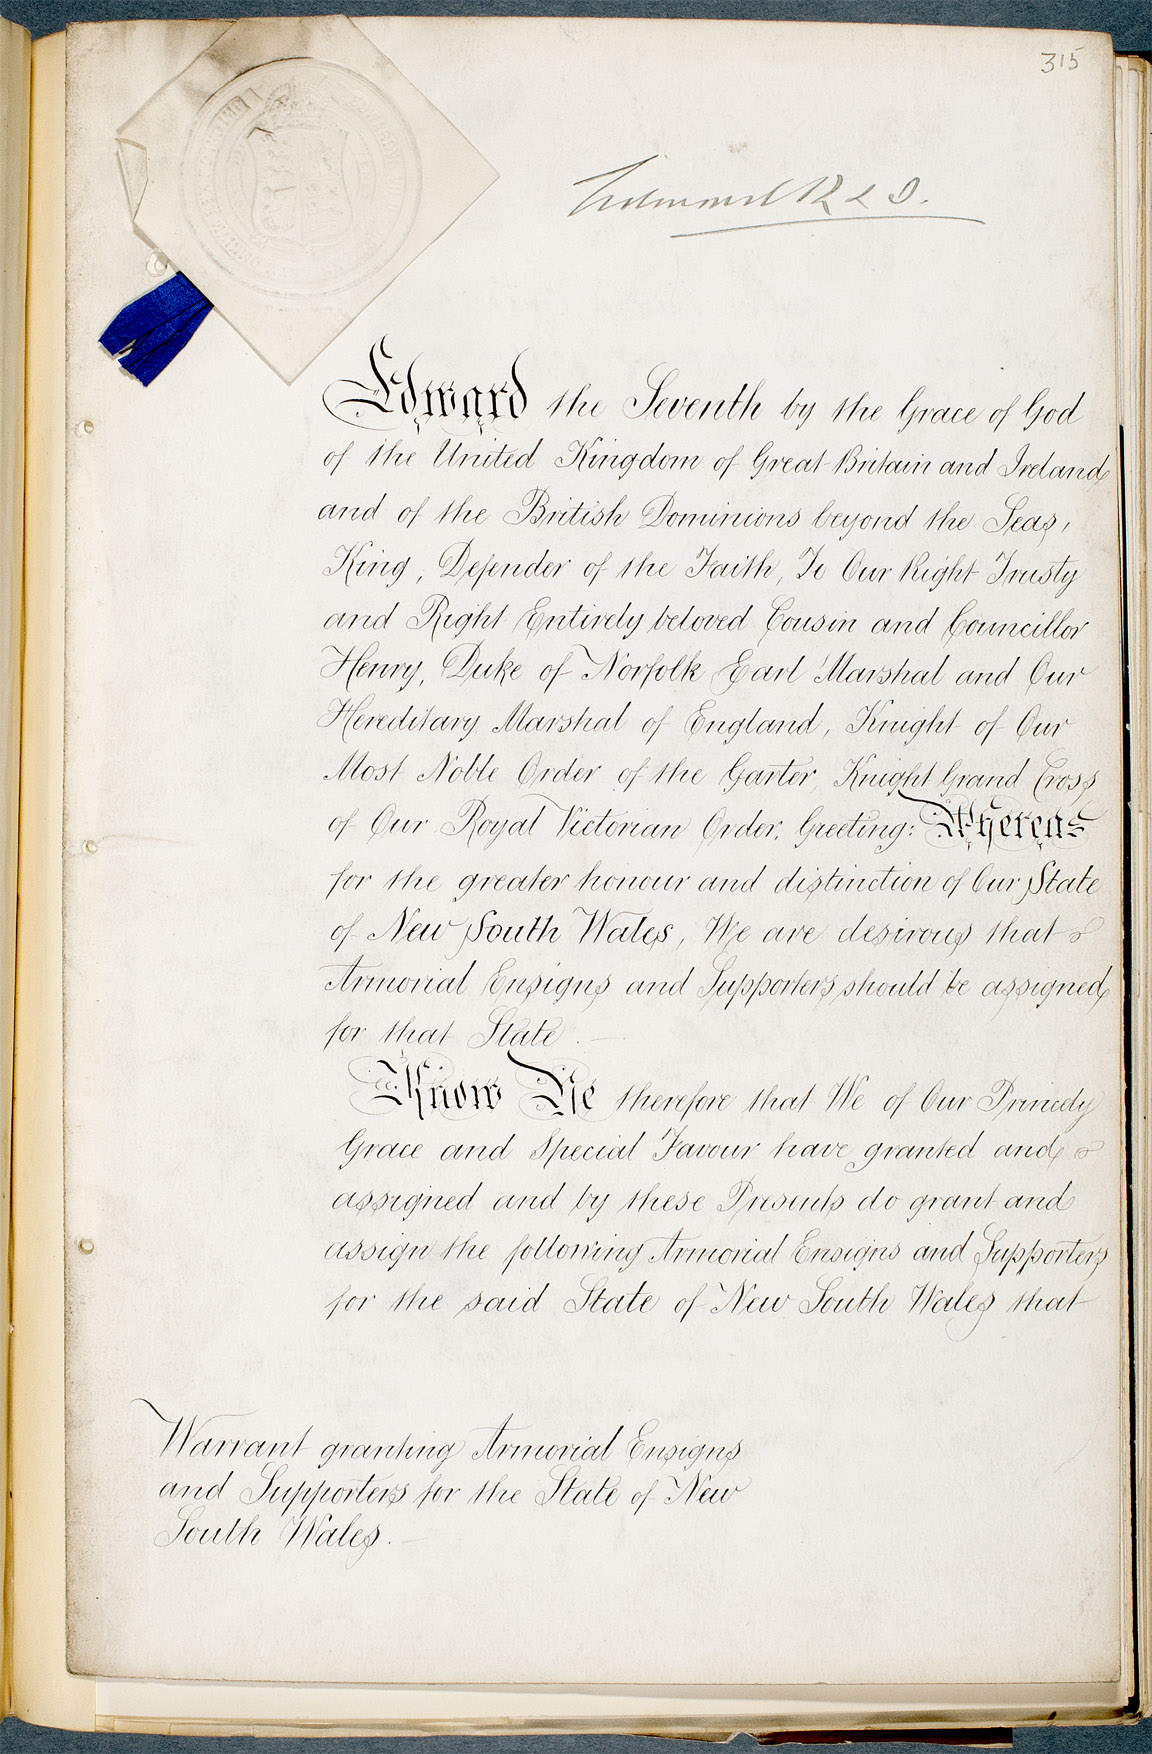 315
Edward R & I.
Edward the Seventh by the Grace of God
of the United Kingdom of Great Britain and Ireland
and of the British Dominions beyond the Seas,
King, Defender of the Faith, To Our Right Trusty
and Right Entirely beloved Cousin and Councillor
Henry, Duke of Norfolk Earl Marshal and Our
Hereditary Marshal of England, Knight of Our
Most Noble Order of the Garter, Knight Grand Cross
of Our Royal Victorian Order, Greeting: Whereas
for the greater honour and distinction of Our State
of New South Wales, We are desirous that
Armorial Ensigns and Supporters should be assigned
for that State. —
Know Ye therefore that We of Our Princely
Grace and Special Favour have granted and
assigned and by these Presents do grant and
assign the following Armorial Ensigns and Supporters
for the said State of New South Wales that
Warrant granting Armorial Ensigns
and Supporters for the State of New
South Wales. —